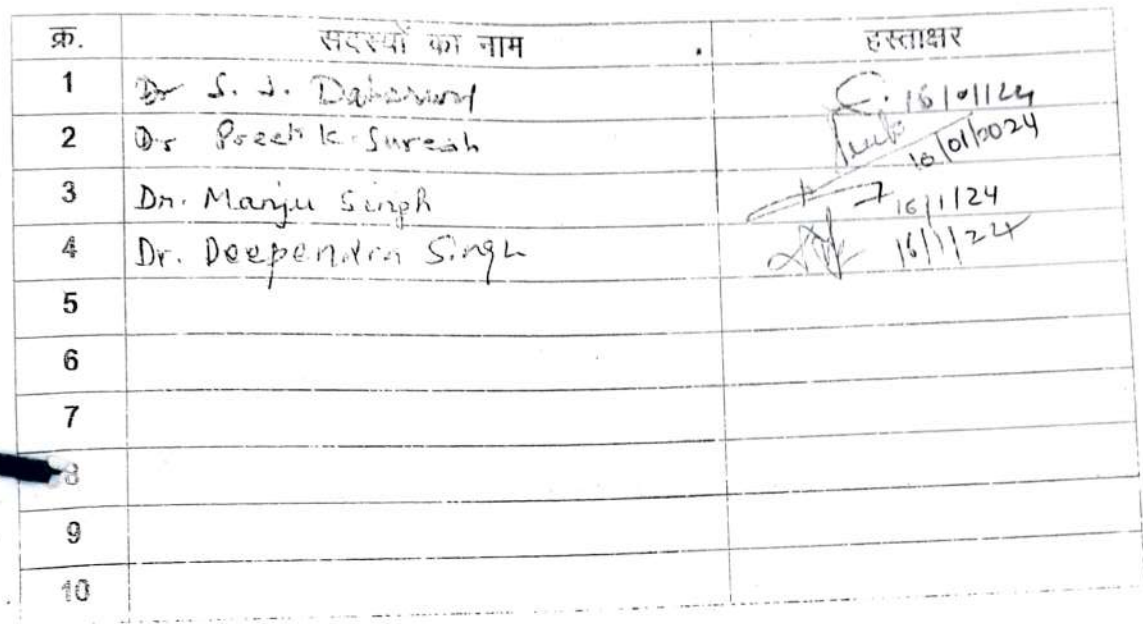 क्र. सदस्यों का नाम हस्ताक्षर
1 Dr S. J. 16/01/24
2 Dr Preeti K. Suresh 16/01/2024
3 Dr. Manju Singh 16/1/24
4 Dr. Deependra Singh 16/1/24
5
6
7
8
9
10